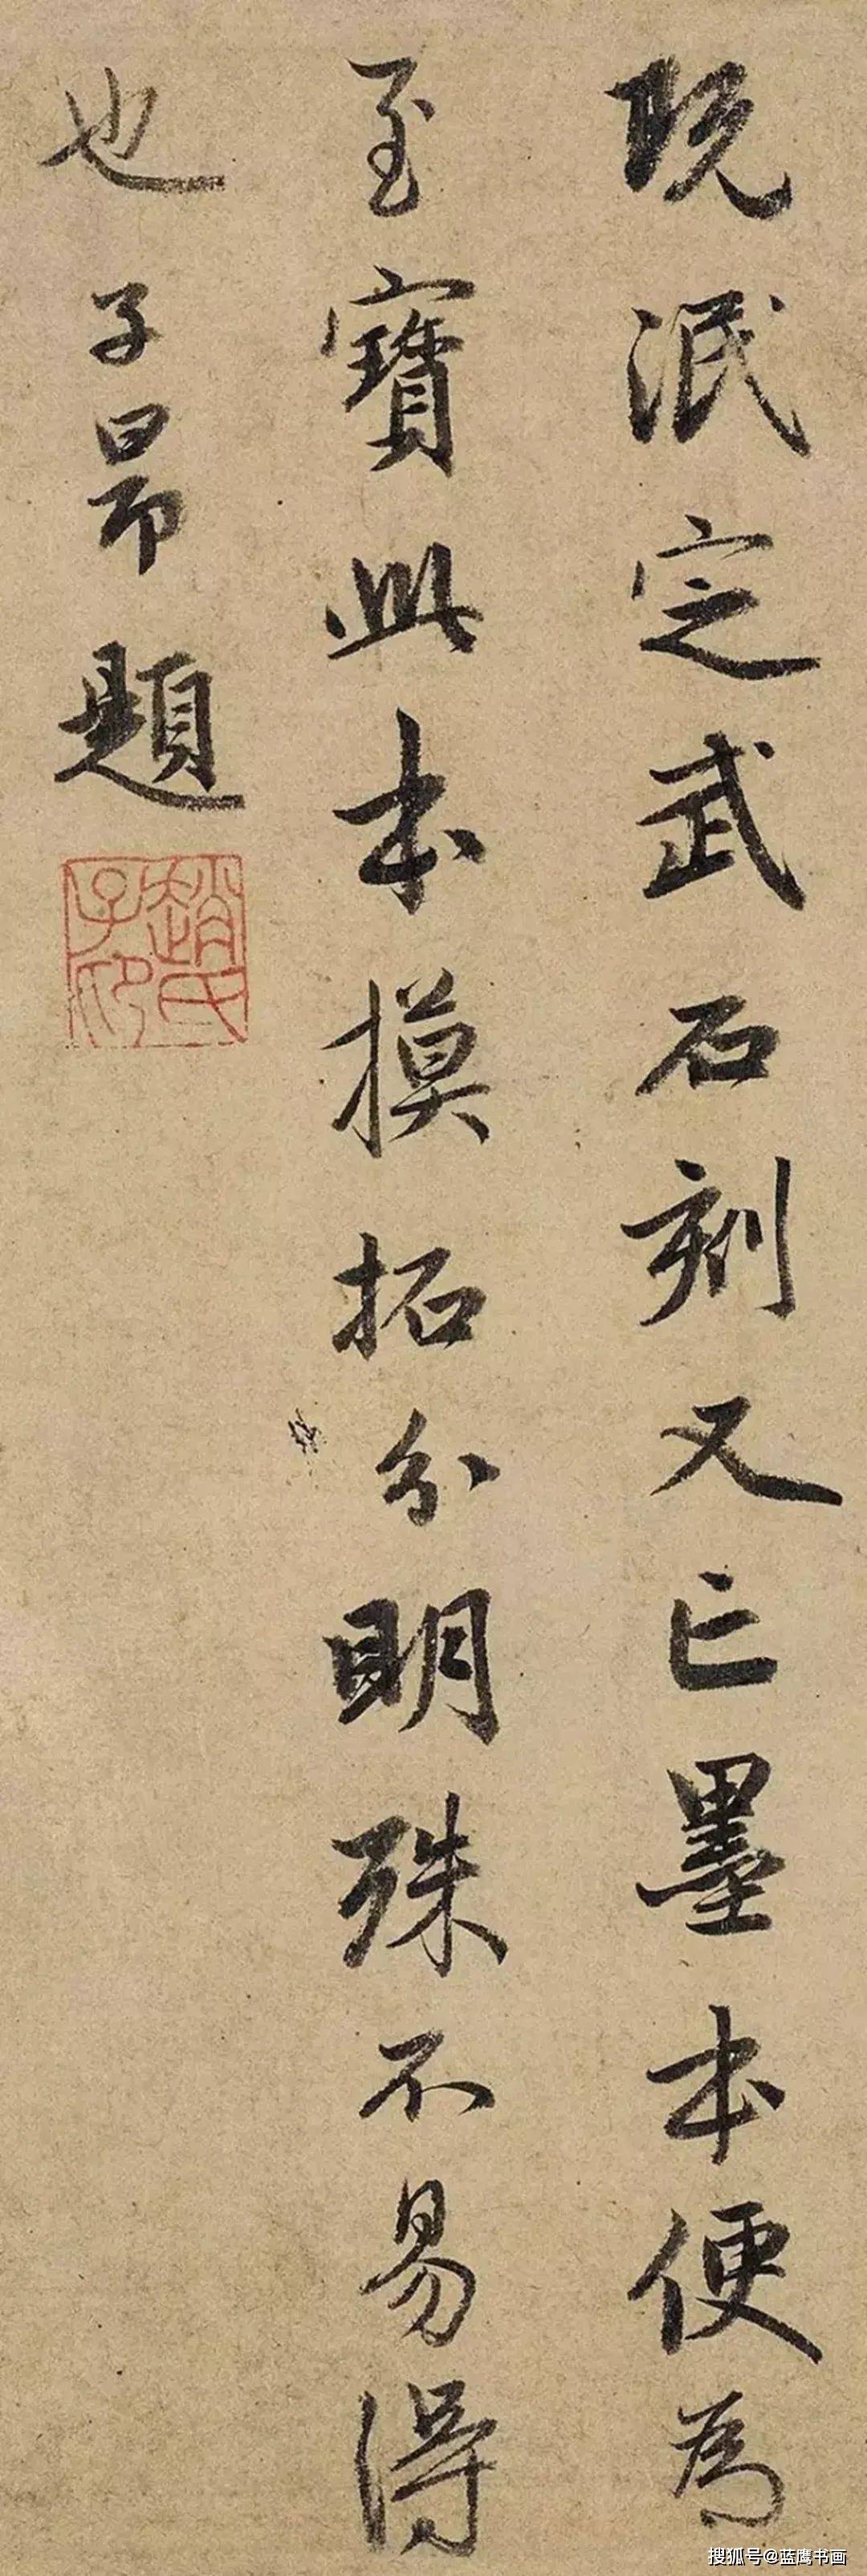 既泯定武石刻又亡墨本便為
至寶此本摸拓分明殊不易得
也子昂題
趙氏子印
搜狐号@蓝鹰书画